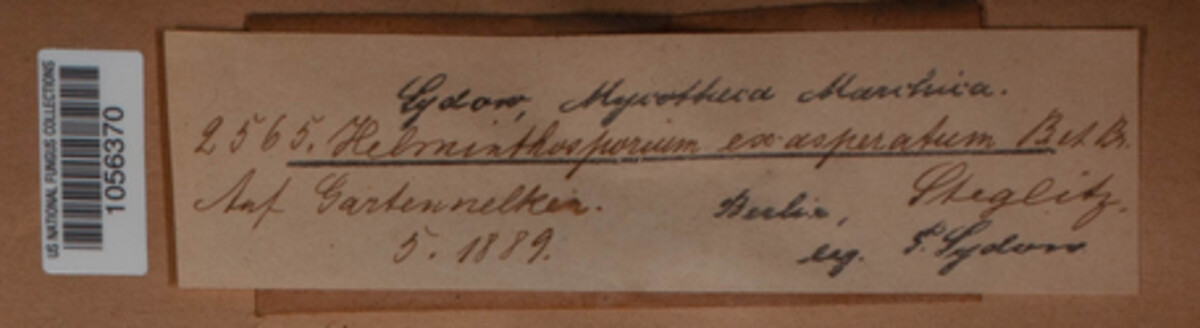 US NATIONAL FUNGUS COLLECTIONS
1056370
Sydow, Mycotheca Marchica.
2565. Helminthosporium exasperatum B et Br.
Auf Gartennelken.
Berlin, Steglitz.
5. 1889.
leg. P. Sydow